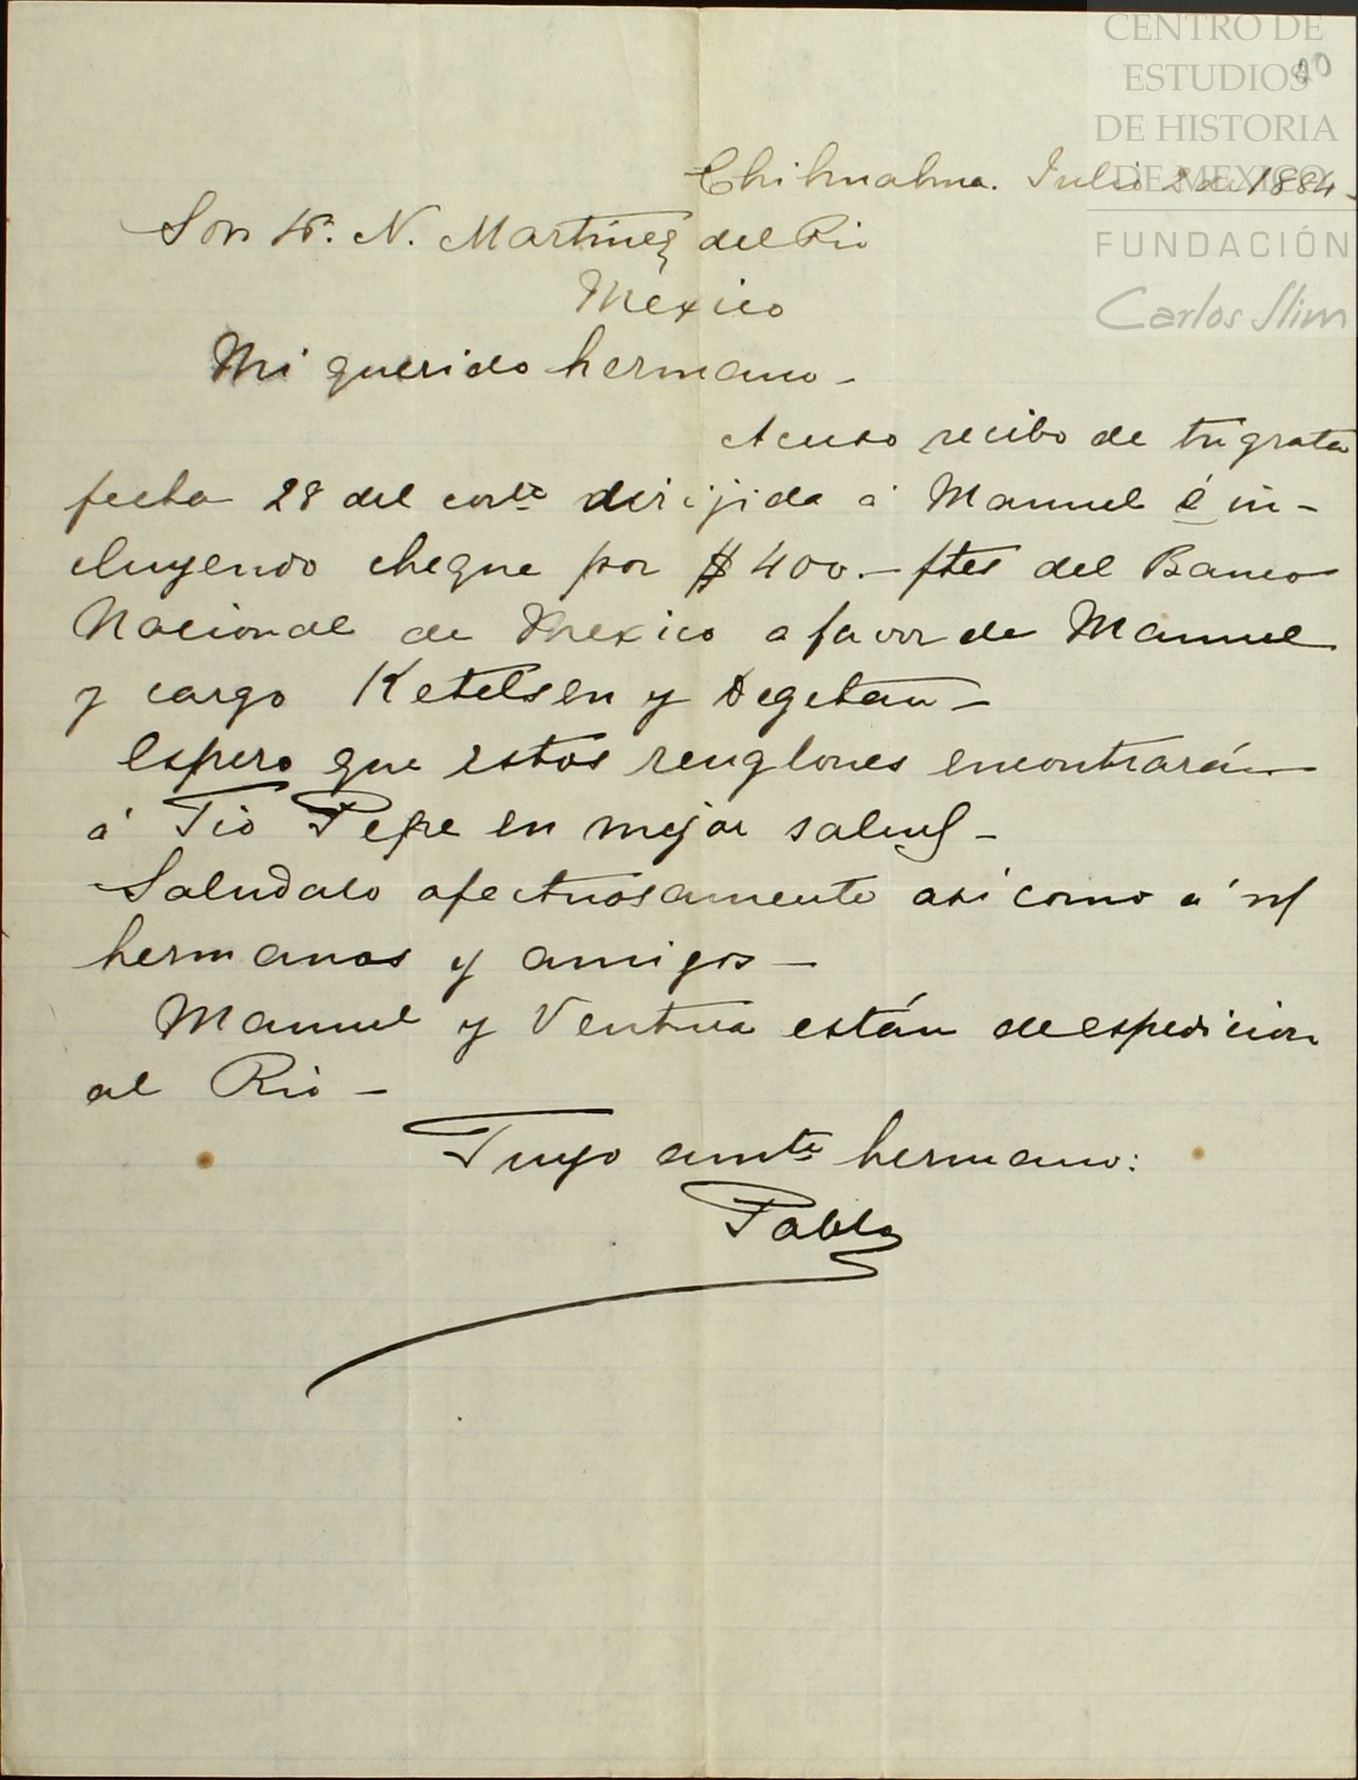 CENTRO DE
ESTUDIOS
DE HISTORIA
DE MEXICO
FUNDACIÓN
Carlos Slim
20
Chihuahua. Julio 2 de 1884-
Sor N. Martínez del Rio
México
Mi querido hermano -
Acuso recibo de tu grata
fecha 28 del corte dirijida á Manuel é in-
cluyendo cheque por $400.- ftes del Banco
Nacional de Mexico a favor de Manuel
y cargo Ketelsen y Degetau -
Espero que estos renglones encontrarán
á Tio Pepe en mejor salud -
Saludalo afectuosamente así como á
hermanos y amigos -
Manuel y Ventura están de espedicion
al Rio -
Tuyo amte hermano:
Pablo